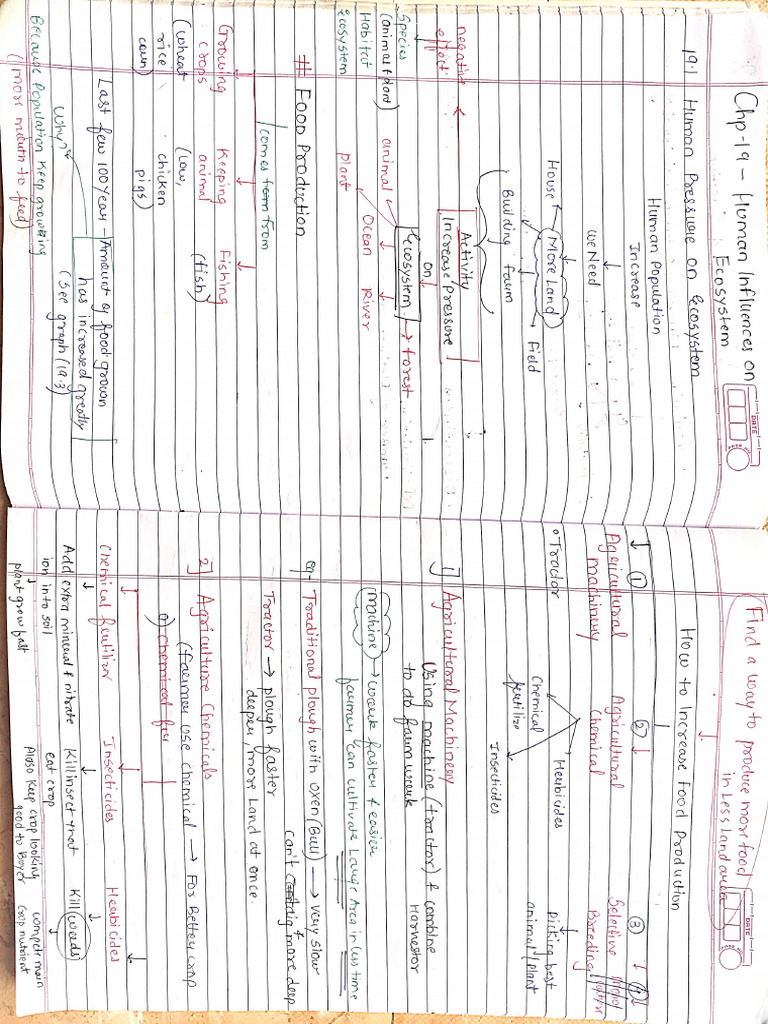 Chp-19 - Human Influences on
Ecosystem
DATE
19.1 Human Pressure on Ecosystem
Human Population
Increase
we Need
House More Land Field
Building farm
Activity
negative Increase/Pressure
effect on
Species ecosystem → forest
(animal & plant)
Habitat animal Ocean River
Ecosystem plant
# FOOD PRODUCTION
comes from from
Growing Keeping Fishing
crops animal (fish)
(wheat (cow,
rice chicken
corn) pigs)
Last few 100 Year - Amount of food grown
has increased greatly
Why? (See graph (19.3)
Because Population keep growing
(more mouth to feed)
Find a way to produce more food
in Less Land area
DATE
How to Increase Food Production
① ② ③ ④
Agricultural Agricultural Selective
machinery Chemical Breeding
• Tractor Herbicides picking best
Chemical animal/plant
fertilize
Insecticides
1] Agricultural Machinery
Using machine (tractor) & combine
to do farm work Harvestor
machine → work faster & easier
farmer can cultivate Large Area in less time
eg- Traditional plough with oxen (Bull) → very slow
can't dig more deep
Tractor → plough faster
deeper, more Land at once.
2] Agriculture Chemicals
(farmer use chemical → For Better crop
a) Chemical fer
Chemical fertilizer Insecticides Herbicides
Add extra mineral & nitrate Kill insect that Kill (weeds)
ion into soil eat crop
plant grow fast Also keep crop looking
good to Buyer
crop nutrient